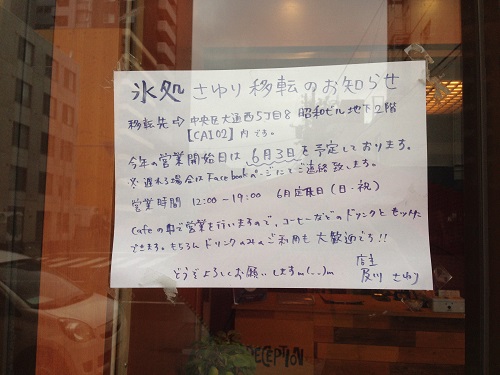 氷処 さゆり 移転のお知らせ
移転先⇨中央区大通西5丁目8 昭和ビル地下2階
[CAI02]内です。
今年の営業開始日は 6月3日を予定しております。
※遅れる場合はFacebookページにてご連絡致します。
営業時間 12:00〜19:00 6月定休日(日・祝)
Cafeの中で営業を行いますので、コーヒーなどのドリンクとセットに
できます。もちろんドリンクのみのご利用も大歓迎です!!
どうぞよろしくお願いしますm(..)m
店主
及川 さゆり
RECEPTION